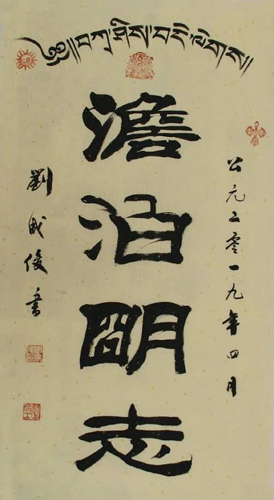 ༄༅།།བཀྲ་ཤིས་བདེ་ལེགས།
公元二零一九年四月
澹泊明志
劉成俊書